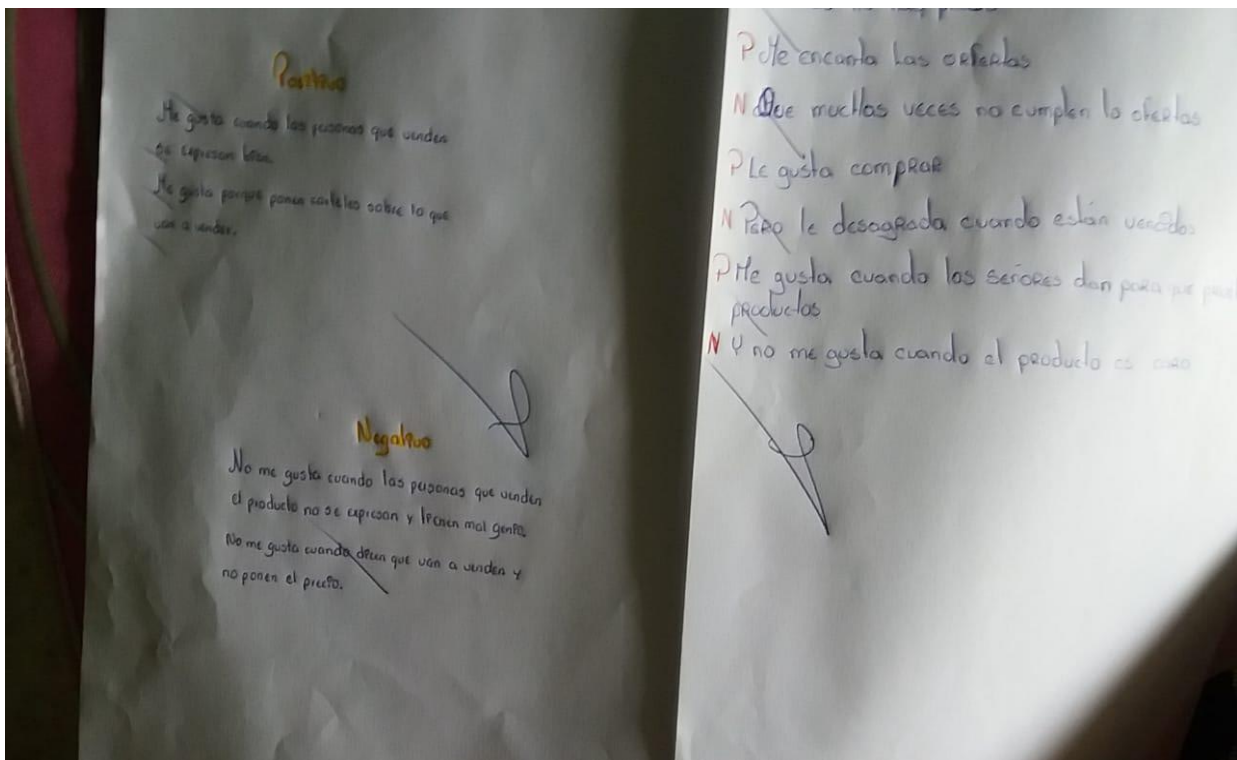 Positivo
Me gusta cuando las personas que venden
se expresan bien.
Me gusta porque ponen carteles sobre lo que
van a vender.
Negativo
No me gusta cuando las personas que venden
el producto no se expresan y tienen mal genio.
No me gusta cuando dicen que van a venden y
no ponen el precio.
P Me encanta las ofertas
N Que muchas veces no cumplen lo ofertas
P Le gusta comprar
N Pero le desagrada cuando están
P Me gusta cuando los señores dan para
productos
N Y no me gusta cuando el producto es caro